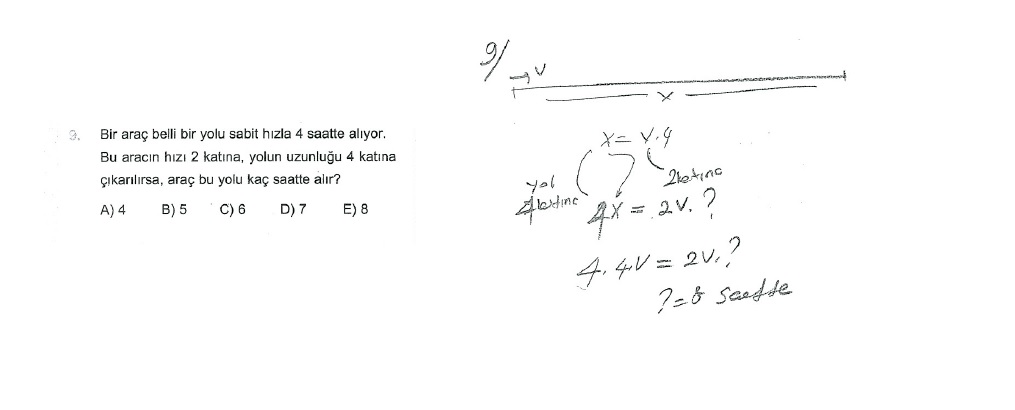 9. Bir araç belli bir yolu sabit hızla 4 saatte alıyor.
Bu aracın hızı 2 katına, yolun uzunluğu 4 katına
çıkarılırsa, araç bu yolu kaç saatte alır?
A) 4 B) 5 C) 6 D) 7 E) 8
9/
V
x
x = V.4
yol
4 katına
2 katına
4x = 2V.?
4.4V = 2V.?
?=8 saatte